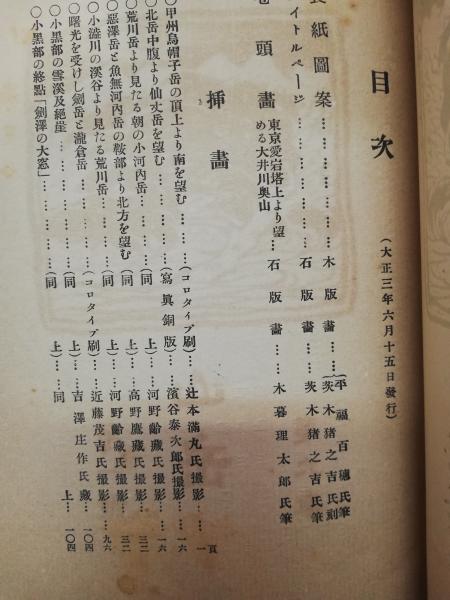 目次
(大正三年六月十五日發行)
紙圖案……………木版畫……{平福百穗氏筆
茨木猪之吉氏刻
イトルページ……………石版畫……茨木猪之吉氏筆
頭畫 東京愛宕塔上より望
める大井川奥山…石版畫……木暮理太郎氏筆
挿畫
○甲州烏帽子岳の頂上より南を望む………(コロタイプ刷)……辻本滿丸氏撮影……一頁
○北岳中腹より仙丈岳を望む………(寫眞銅版)……濱谷泰次郎氏撮影……一六
○荒川岳より見たる朝の小河內岳………(同上)……河野齡藏氏撮影……一六
○惡澤岳と魚無河內岳の鞍部より北方を望む(同上)……高野鷹藏氏撮影……三二
○小澁川の溪谷より見たる荒川岳………(同上)……河野齡藏氏撮影……三二
○曙光を受けし劍岳と瀧倉岳………(コロタイプ刷)……近藤茂吉氏撮影……九六
○小黑部の雪溪及絕崖………(同上)……吉澤庄作氏藏……一〇四
○小黑部の終點「劍澤の大窓」………(同上)……同上……一〇四